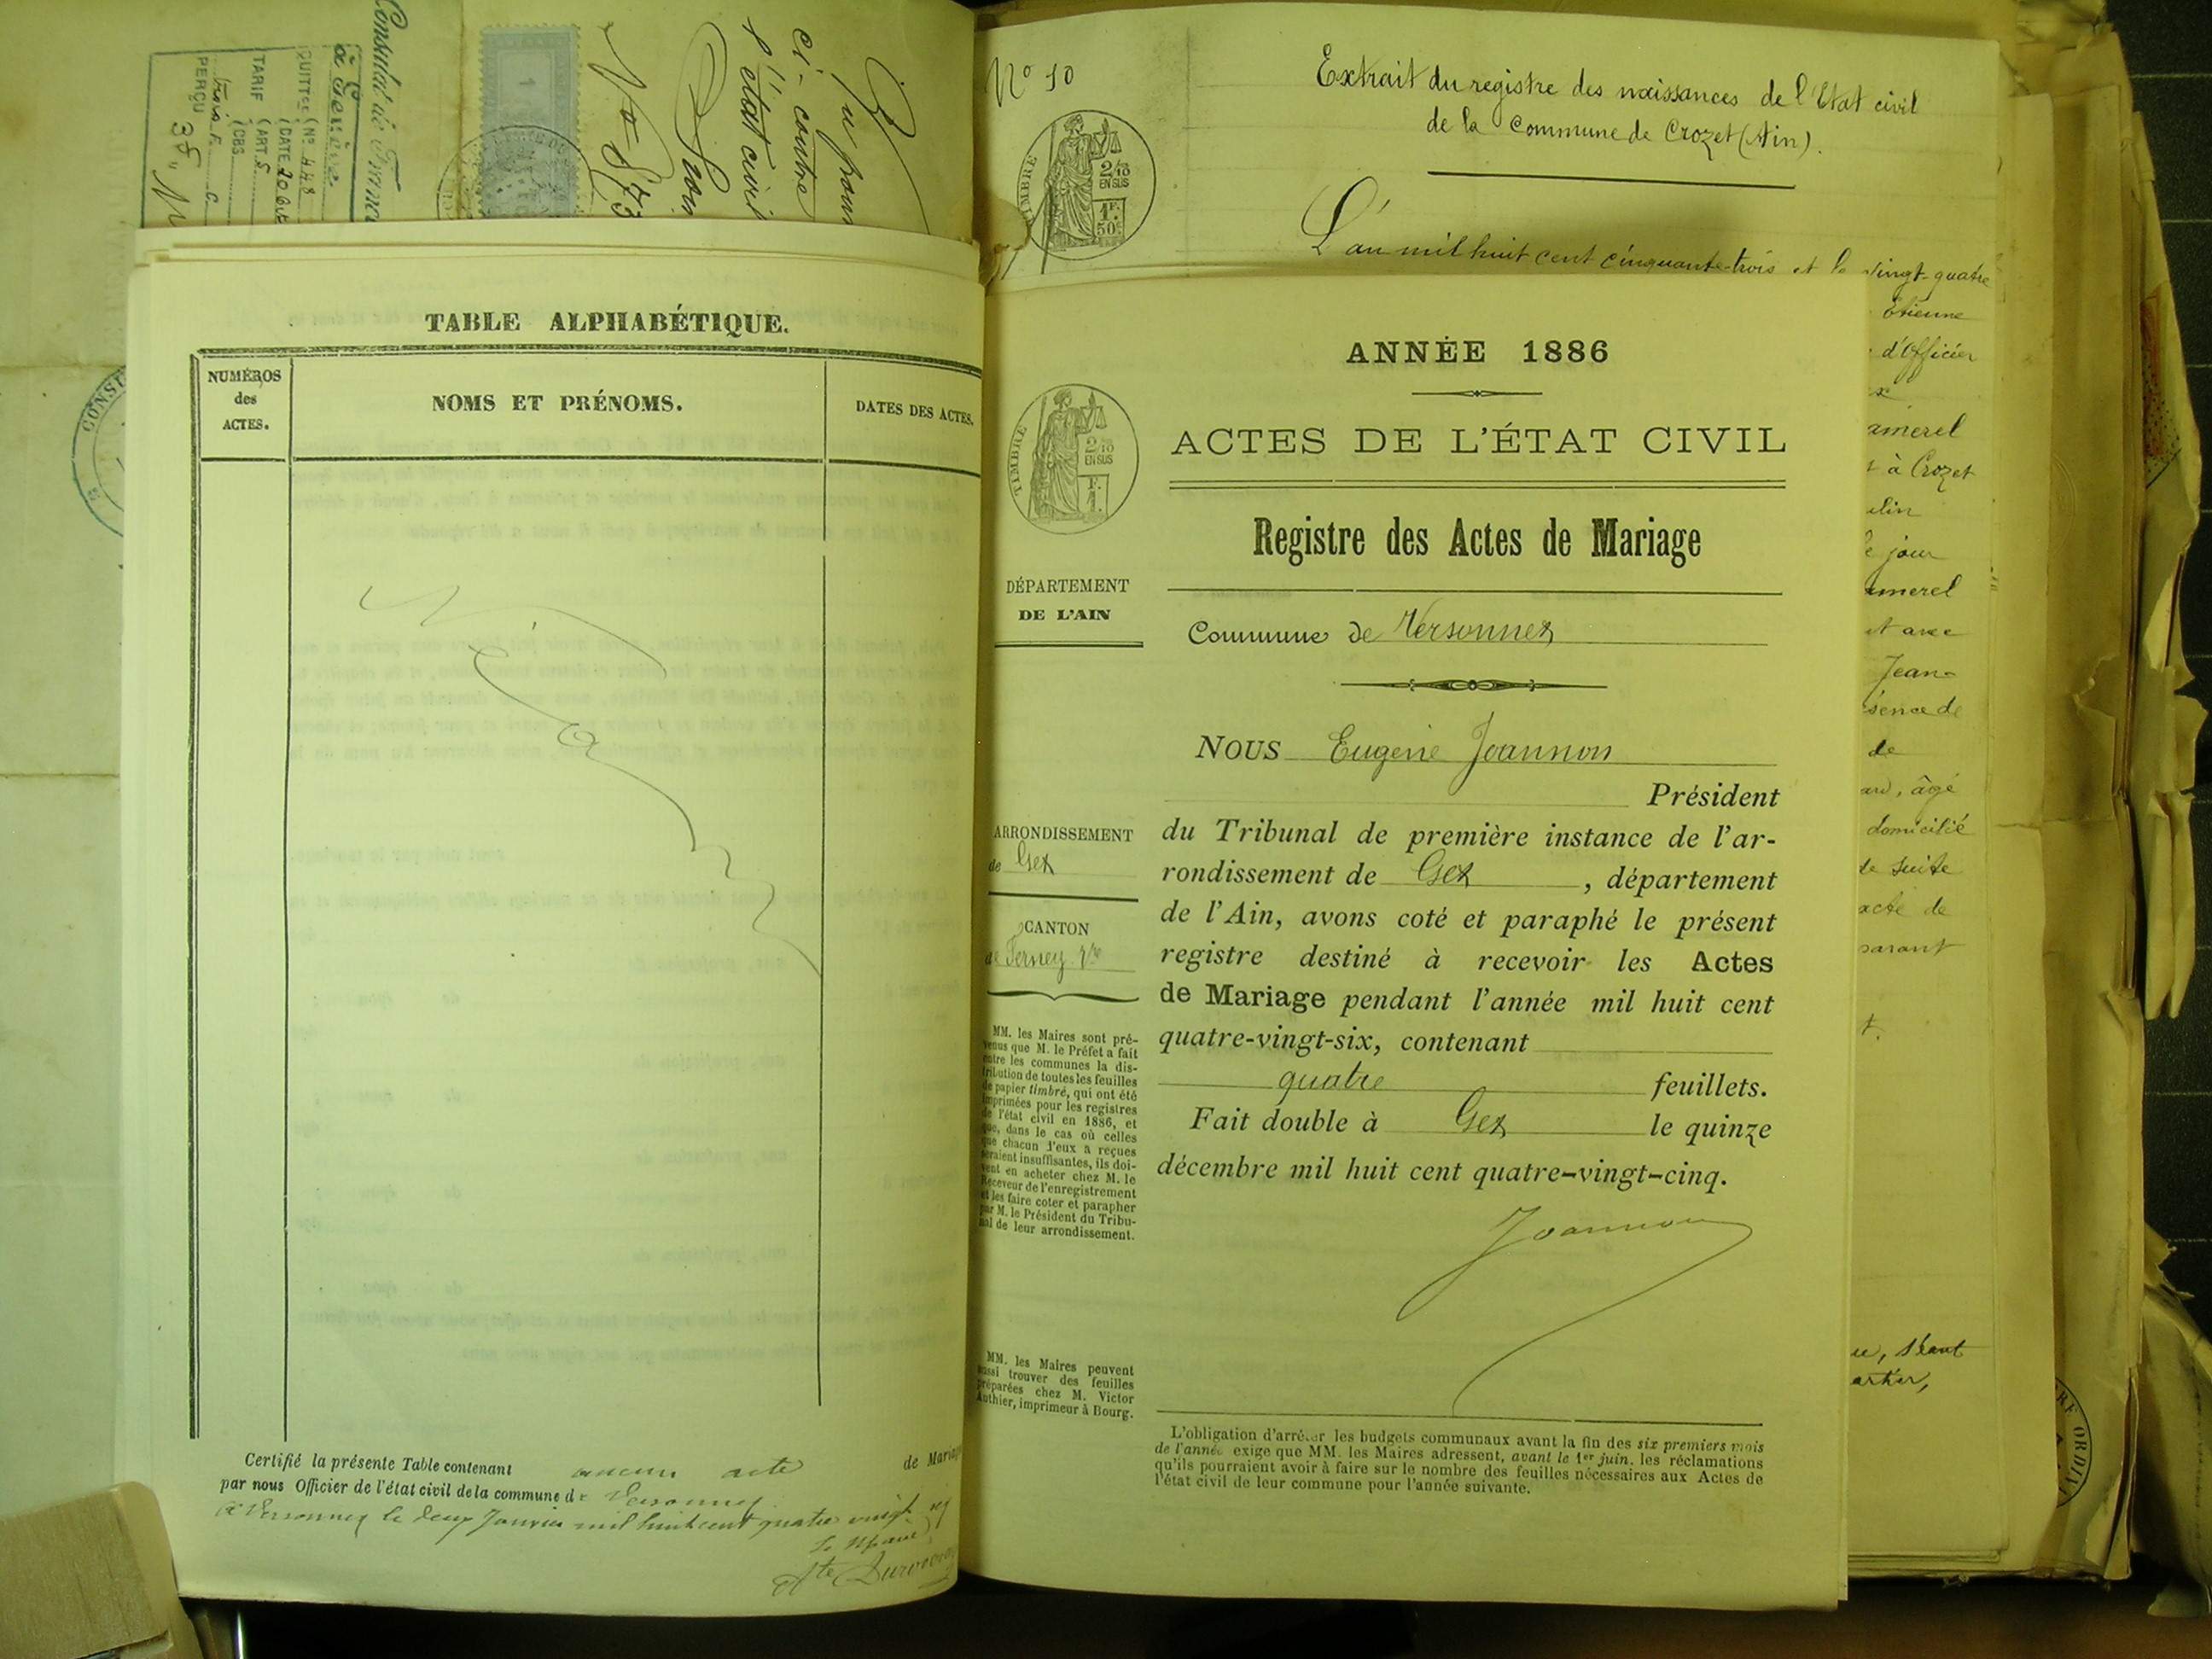 Consulat de France
à Genève
QUITTCE (No 448
(DATE 20
TARIF (ART. 8
(CBS
PERÇU trois F. C.
No 573
Vu pour
ci-contre
l'état civil
TABLE ALPHABÉTIQUE.
NUMÉROS
des
ACTES.
NOMS ET PRÉNOMS.
DATES DES ACTES.
Certifié la présente Table contenant aucun acte de Mariage
par nous Officier de l'état civil de la commune de Versonnex
à Versonnex le deux Janvier mil huit cent quatre vingt
le Maire
No 10
Extrait du registre des naissances de l'Etat civil
de la Commune de Crozet (Ain).
TIMBRE
2/10
EN SUS
1F.
50c
L'an mil huit cent cinquante-trois et le vingt-quatre
Etienne
d'Officier
amerel
à Crozet
jour
amerel
et avec
Jean-
de
âgé
domicilié
de suite
acte de
ANNÉE 1886
ACTES DE L'ÉTAT CIVIL
Registre des Actes de Mariage
TIMBRE
2/10
EN SUS
F.
1.
DÉPARTEMENT
DE L'AIN
Commune de Versonnex
NOUS Eugène Joannon
Président
du Tribunal de première instance de l'ar-
rondissement de Gex, département
de l'Ain, avons coté et paraphé le présent
registre destiné à recevoir les Actes
de Mariage pendant l'année mil huit cent
quatre-vingt-six, contenant
quatre feuillets.
Fait double à Gex le quinze
décembre mil huit cent quatre-vingt-cinq.
Joannon
ARRONDISSEMENT
de Gex
CANTON
de Ferney-Vre
MM. les Maires sont pré-
venus que M. le Préfet a fait
entre les communes la dis-
tribution de toutes les feuilles
de papier timbré, qui ont été
imprimées pour les registres
de l'état civil en 1886, et
que, dans le cas où celles
que chacun d'eux a reçues
seraient insuffisantes, ils doi-
vent en acheter chez M. le
Receveur de l'enregistrement
et les faire coter et parapher
par M. le Président du Tribu-
nal de leur arrondissement.
MM. les Maires peuvent
aussi trouver des feuilles
préparées chez M. Victor
Authier, imprimeur à Bourg.
L'obligation d'arrêter les budgets communaux avant la fin des six premiers mois
de l'année exige que MM. les Maires adressent, avant le 1er juin, les réclamations
qu'ils pourraient avoir à faire sur le nombre des feuilles nécessaires aux Actes de
l'état civil de leur commune pour l'année suivante.